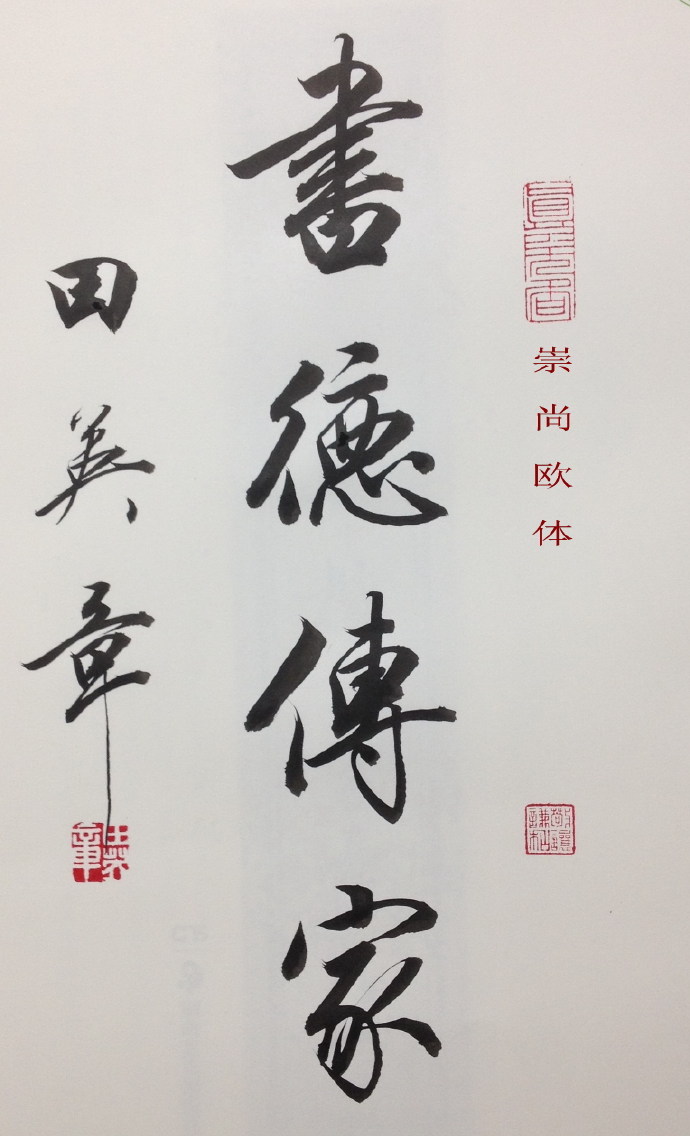 崇尚欧体
書德傳家
田英章